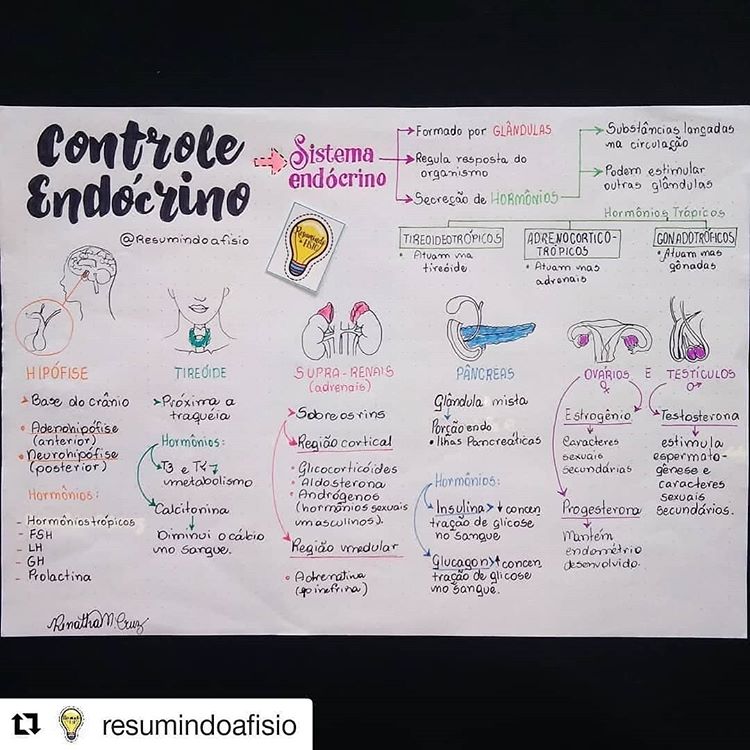 Controle
Endócrino
@Resumindoafisio
Sistema
endócrino
Formado por GLÂNDULAS
Regula resposta do
organismo
Secreção de HORMÔNIOS
Substâncias lançadas
na circulação
Podem estimular
outras glândulas
Hormônios Trápicos
TIREOIDEOTRÓPICOS
• Atuam na
tireóide
ADRENOCORTICO-
TRÓPICOS
• Atuam nas
adrenais
GONADOTRÓFICOS
• Atuam nas
gônadas
Resumindo
a FISIO
HIPÓFISE
Base do crânio
• Adenohipófise
(anterior)
• Neurohipófise
(posterior)
Hormônios:
- Hormônios trópicos
- FSH
- LH
- GH
- Prolactina
TIREÓIDE
Próxima a
traquéia
Hormônios:
T3 e T4
metabolismo
Calcitonina
Diminui o cálcio
no sangue.
SUPRA-RENAIS
(adrenais)
Sobre os rins
Região cortical
• Glicocorticóides
• Aldosterona
• Andrógenos
(hormônios sexuais
masculinos).
Região medular
• Adrenalina
(epinefrina)
PÂNCREAS
Glândula mista
Porção endo
• Ilhas Pancreáticas
Hormônios:
Insulina > ↓ concen
tração de glicose
no sangue
Glucagon > ↑ concen
tração de glicose
no sangue.
OVÁRIOS E TESTÍCULOS
♀ ♂
Estrogênio
Caracteres
sexuais
secundários
Progesterona
Mantém
endométrio
desenvolvido.
Testosterona
estimula
espermato-
gênese e
caracteres
sexuais
secundários.
Renatha M. Cruz
resumindoafisio